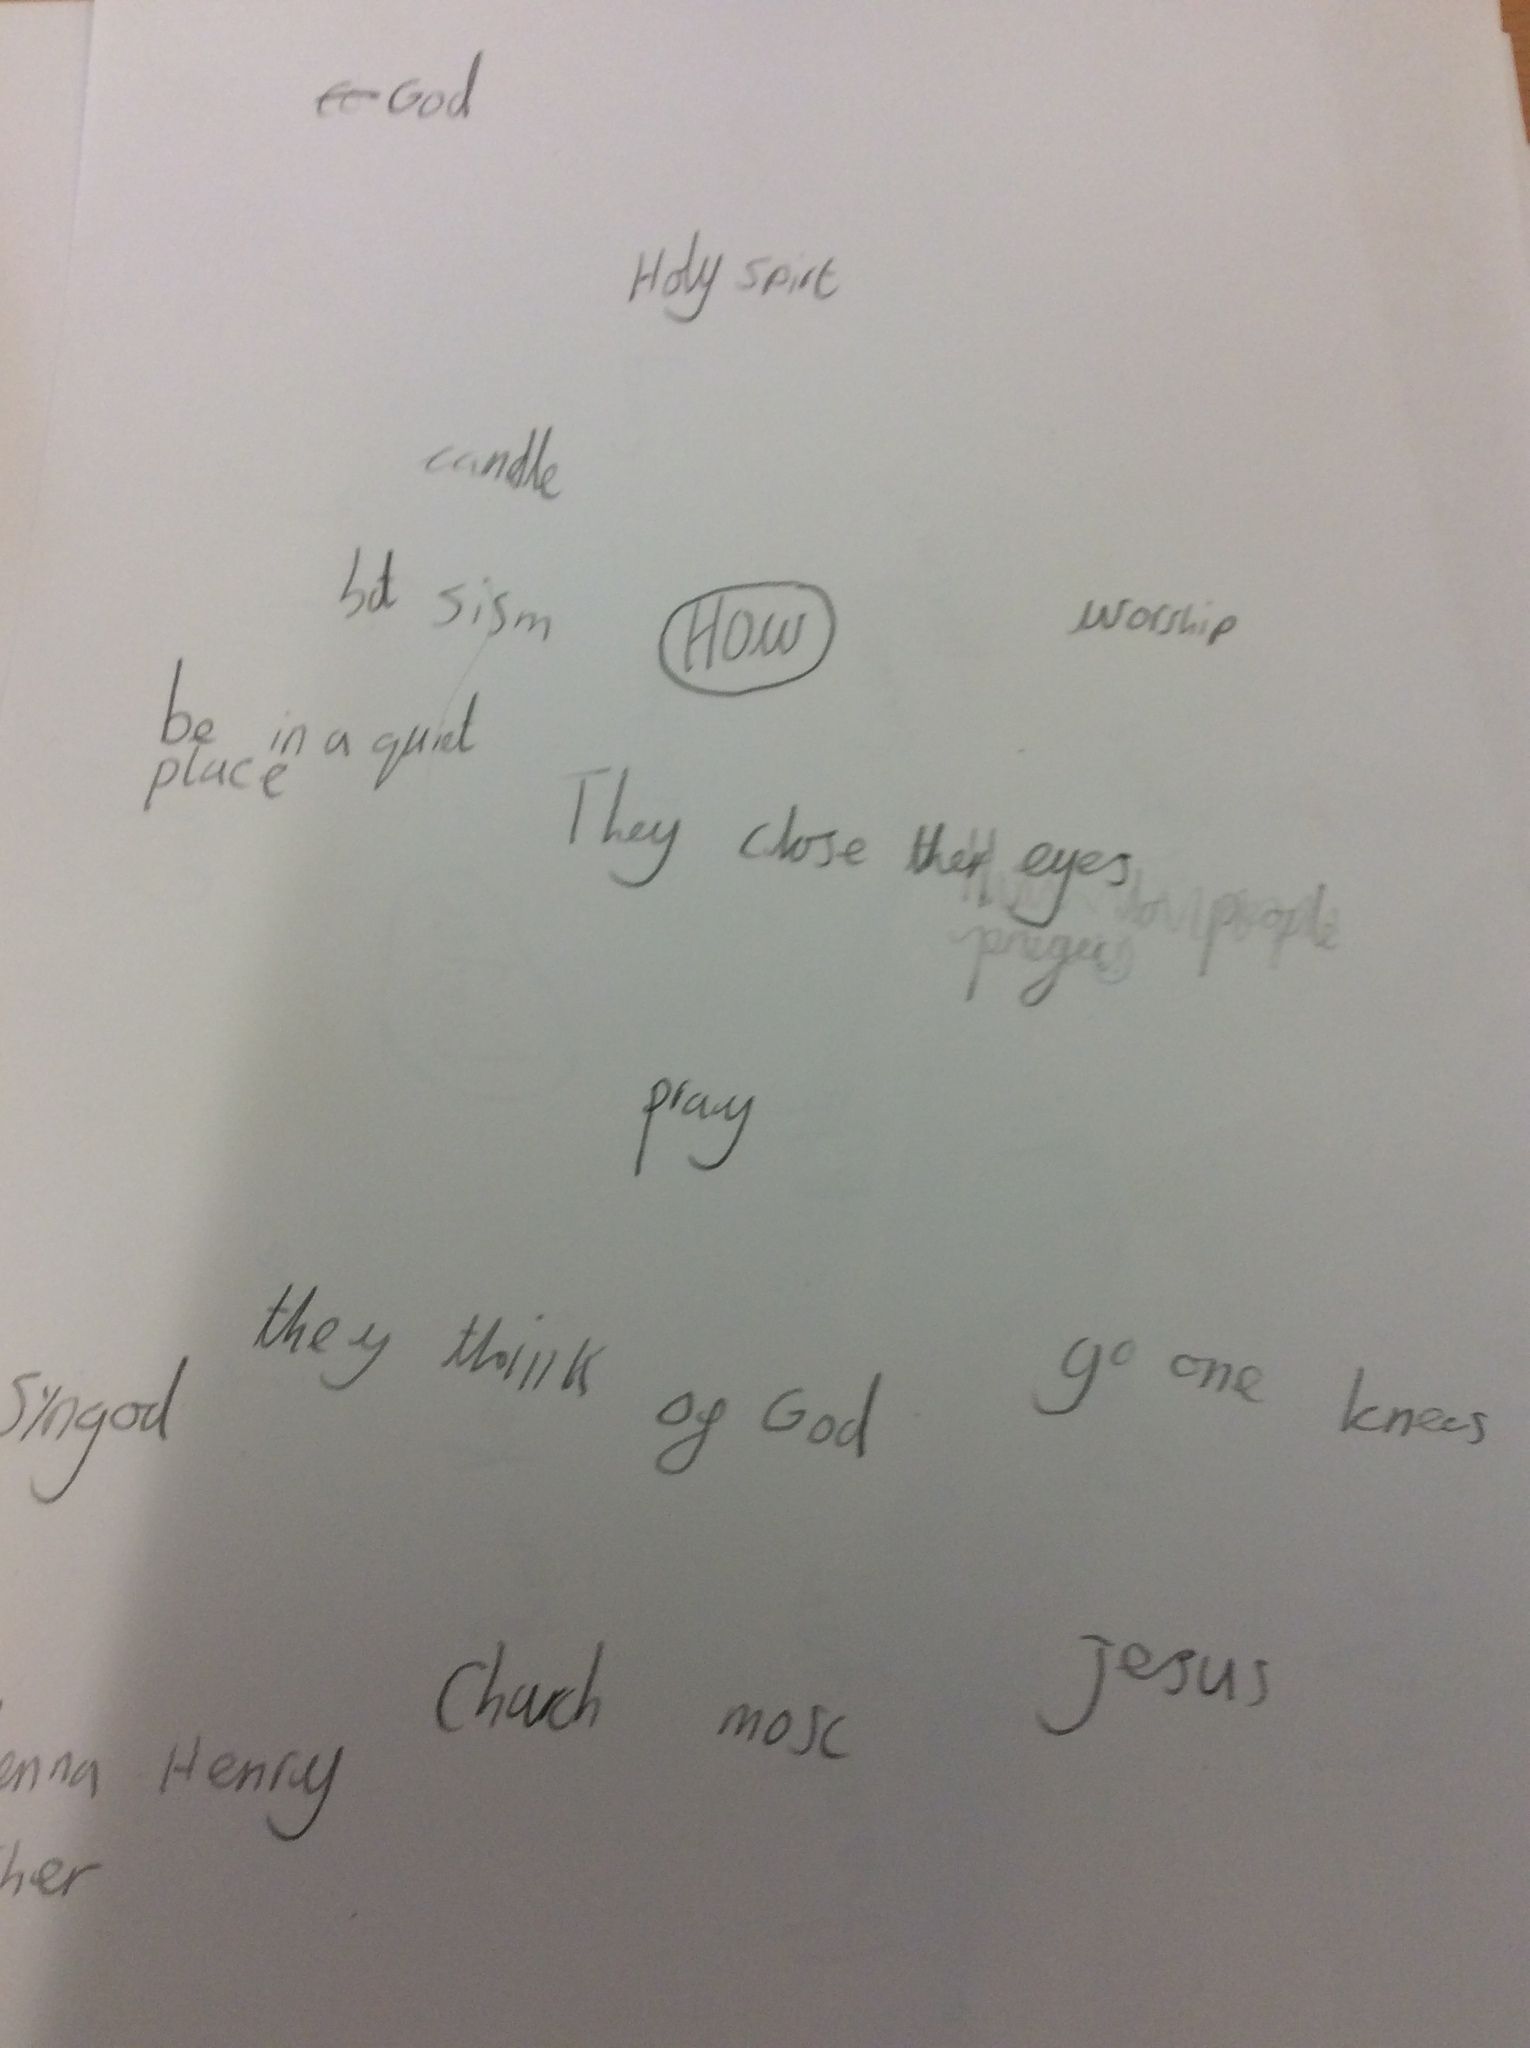 God
Holy spirt
candle
bat sism
HOW
worship
be in a quiet
place
They close their eyes
people
pray
they thiink
of God
go one knees
Syngod
Church
mosc
Jesus
enna Henry
her